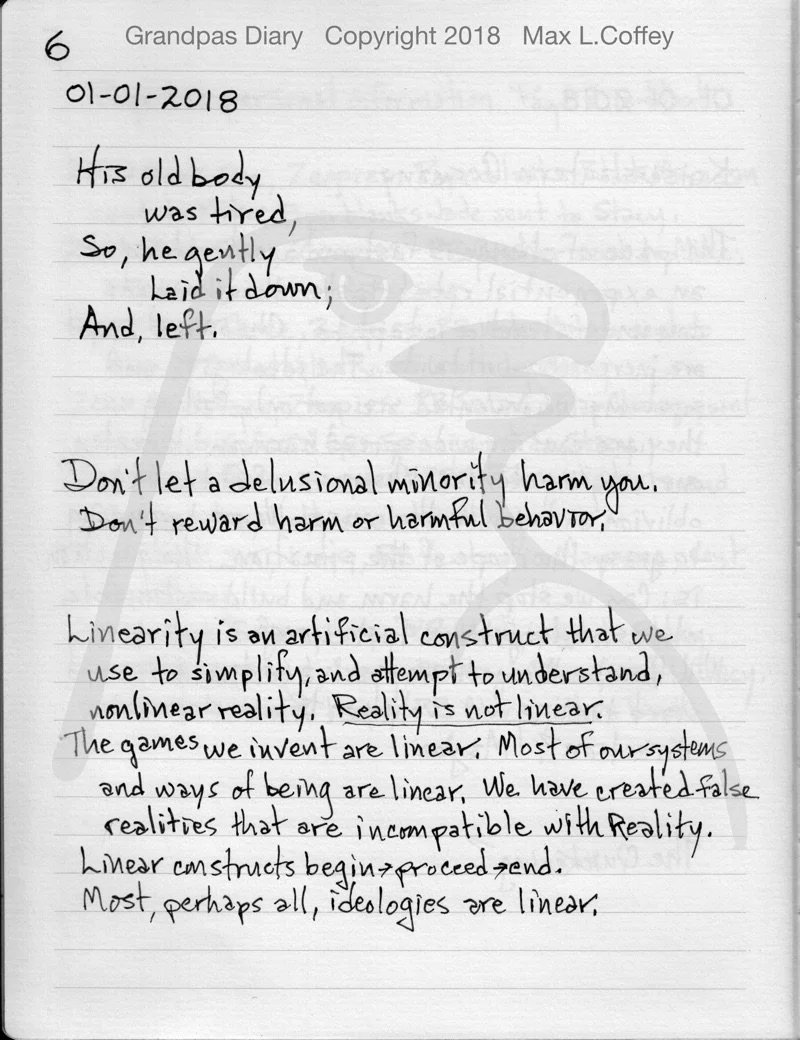 Grandpas Diary Copyright 2018 Max L.Coffey
6
01-01-2018
His old body
was tired,
So, he gently
Laid it down;
And, left.
Don't let a delusional minority harm you.
Don't reward harm or harmful behavior.
Linearity is an artificial construct that we
use to simplify, and attempt to understand,
nonlinear reality. Reality is not linear.
The games we invent are linear. Most of our systems
and ways of being are linear. We have created false
realities that are incompatible with Reality.
Linear constructs begin→proceed→end.
Most, perhaps all, ideologies are linear.